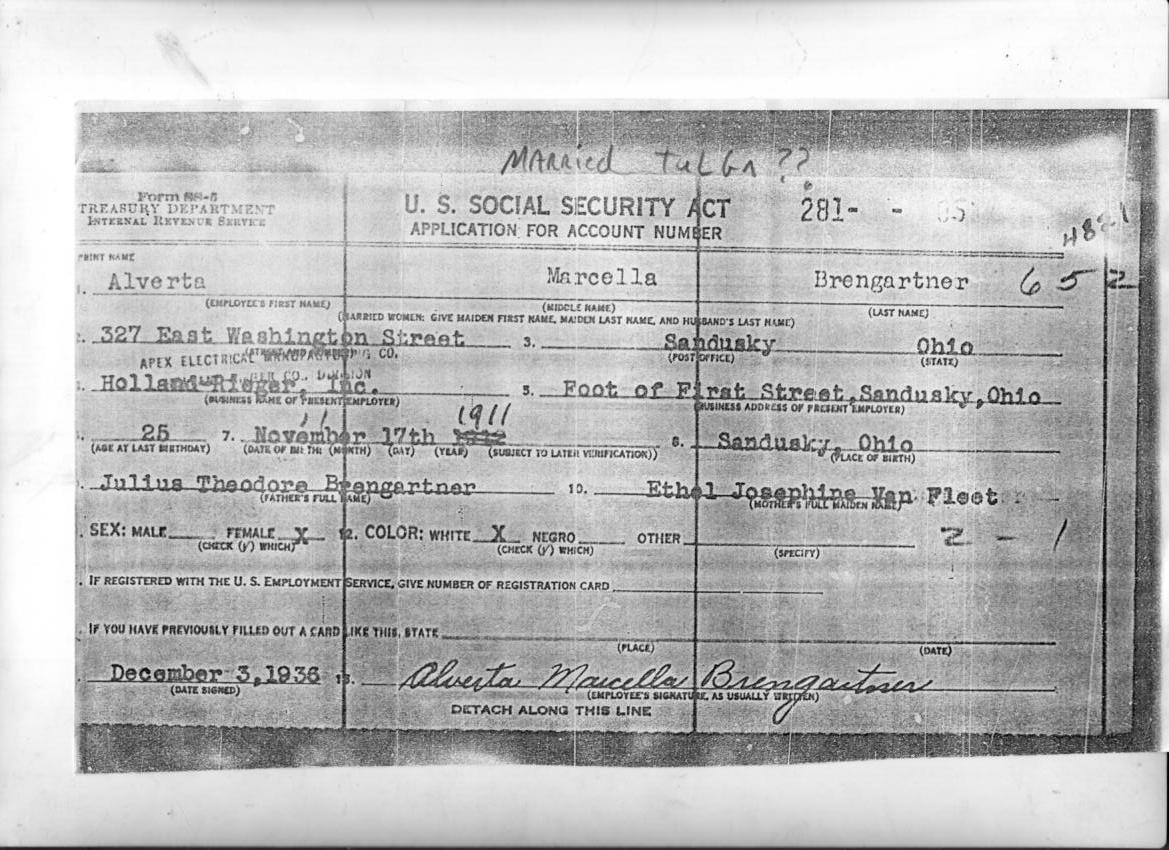 MARRied tulga ??
Form SS-5
TREASURY DEPARTMENT
INTERNAL REVENUE SERVICE
U. S. SOCIAL SECURITY ACT
APPLICATION FOR ACCOUNT NUMBER
281- - 05
6 5 2
PRINT NAME
Alverta Marcella Brengartner
(EMPLOYEE'S FIRST NAME) (MIDDLE NAME) (LAST NAME)
(MARRIED WOMEN: GIVE MAIDEN FIRST NAME, MAIDEN LAST NAME, AND HUSBAND'S LAST NAME)
327 East Washington Street 3. Sandusky Ohio
(POST OFFICE) (STATE)
APEX ELECTRICAL MANUFACTURING CO.
Holland-Rieger, Inc. 5. Foot of First Street,Sandusky,Ohio
(BUSINESS NAME OF PRESENT EMPLOYER) (BUSINESS ADDRESS OF PRESENT EMPLOYER)
11 1911
25 7. November 17th 8. Sandusky, Ohio
(AGE AT LAST BIRTHDAY) (DATE OF BIRTH: (MONTH) (DAY) (YEAR) (SUBJECT TO LATER VERIFICATION)) (PLACE OF BIRTH)
Julius Theodore Brengartner 10. Ethel Josephine Van Fleet
(FATHER'S FULL NAME) (MOTHER'S FULL MAIDEN NAME)
. SEX: MALE FEMALE X 12. COLOR: WHITE X NEGRO OTHER 2 - 1
(CHECK (√) WHICH) (CHECK (√) WHICH) (SPECIFY)
. IF REGISTERED WITH THE U. S. EMPLOYMENT SERVICE, GIVE NUMBER OF REGISTRATION CARD
. IF YOU HAVE PREVIOUSLY FILLED OUT A CARD LIKE THIS, STATE
(PLACE) (DATE)
December 3,1936 15. Alverta Marcella Brengartner
(DATE SIGNED) (EMPLOYEE'S SIGNATURE, AS USUALLY WRITTEN)
DETACH ALONG THIS LINE